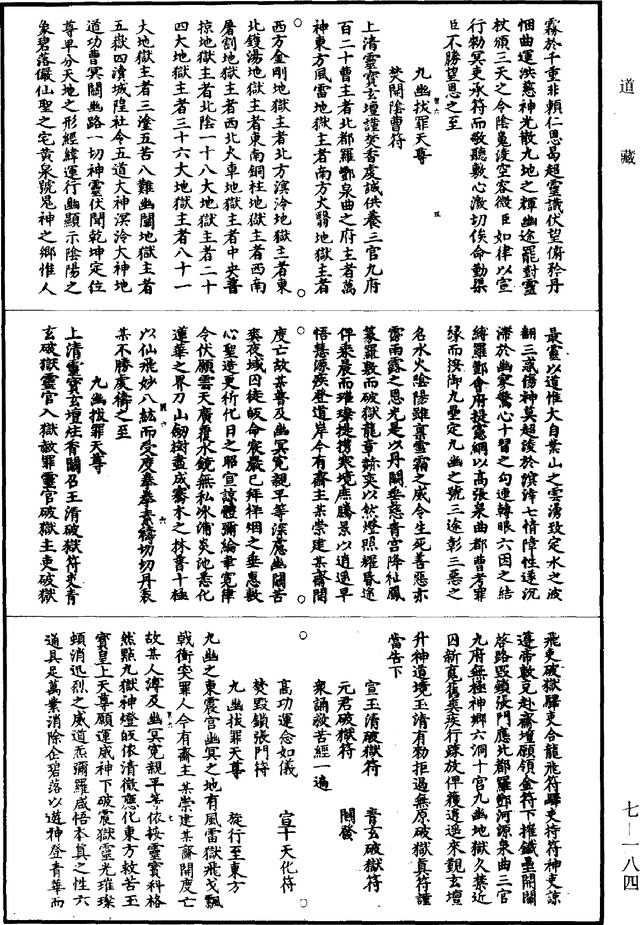 道藏
霧於千重非賴仁思曷超靈識伏望俯矜丹
悃曲運洪慈神光散九地之輝幽途罷對靈
杖頒三天之令陰鬼淩空客微臣如律以宣
行勑冥吏承符而敬聽數心激切俟命勤渠
臣不勝望恩之至
九幽拔罪天尊
焚開陰曹符
上清靈寶玄壇謹焚香虔誠供養三官九府
百二十曹主者北都羅酆泉曲之府主者萬
神東方風雷地獄主者南方火翳地獄主者
西方金剛地獄主者北方溟泠地獄主者東
北鑊湯地獄主者東南銅柱地獄主者西南
屠割地獄主者西北火車地獄主者中央普
掠地獄主者北陰一十八大地獄主者二十
四大地獄主者三十六大地獄主者八十一
大地獄主者三塗五苦八難幽關地獄主者
五嶽四瀆城隍社令五道大神溟泠大神地
道功曹冥關幽路一切神靈伏聞乾坤定位
尊卑分天地之形經緯運行幽顯示陰陽之
象碧落儼仙聖之宅黃泉號鬼神之鄉惟人
最靈以道惟大自業山之雲湧致定水之波
翻三惑傷神莫超淩於溟涬七情障性遂沉
滯於幽寒驚心十習之勾連轉眼六因之結
縛羅酆會府提憲綱以高張泉曲都曹考罪
緣而按御九壘定九幽之號三途彰三惡之
名水火陰陽雖稟雪霜之威令生死善惡亦
霑雨露之恩光是以丹闕垂慈青宮降祉鳳
篆羅敷而破獄龍章䟽奕以然燈照耀昏途
俾乘晨而璀璨提攜寒境庶騰景以逍遙早
悟慧源疾登道岸今有齋主某崇建某齋開
度亡故某普及幽冥冤親平等深應幽關苦
爽夜域囚徒皈命宸嚴已拜祥烟之垂惠敷
心聖造更祈化日之昭宣諒體彌綸聿寬律
令伏願雲天廣覆水鏡無私冰浦炎池悉化
蓮華之界刀山劒樹盡成騫木之林普十極
以仙飛妙八紘而受度拳拳素禱切切丹衷
某不勝虔禱之至
九幽拔罪天尊
上清靈寶玄壇炷香關召玉清破獄符吏青
玄破獄靈官入獄赦罪靈官破獄主吏破獄
飛吏破獄驛吏合龍飛符驛吏持符神吏諒
遵帝敕克赴齋壇願領金符下摧鐵壘開關
啓路毀鎖張門應北都羅酆河源泉曲三官
九府無極神鄉六洞十宮九幽地獄久禁近
囚新冤舊爽疾行踈放俾獲逍遙來覲玄壇
升神道境玉清有勑拒過無原破獄真符謹
當告下
宣玉清破獄符　青玄破獄符
元君破獄符　關發
衆誦救苦經一遍
高功運念如儀　宣十天化符
焚毀鎖張門符
九幽拔罪天尊　旋行至東方
九幽之東震宮幽冥之地有風雷獄飛戈飄
戟衝突罪人今有齋主某崇建某齋開度亡
故某人溥及幽冥冤親平等依按靈寶科格
然點九獄神燈皈依清微應化東方救苦玉
寶皇上天尊願運威神下破震獄靈光璀璨
頓消迅烈之威道炁彌羅咸悟本真之性六
道具足萬業消除企碧落以遊神登青華而
七—一八四